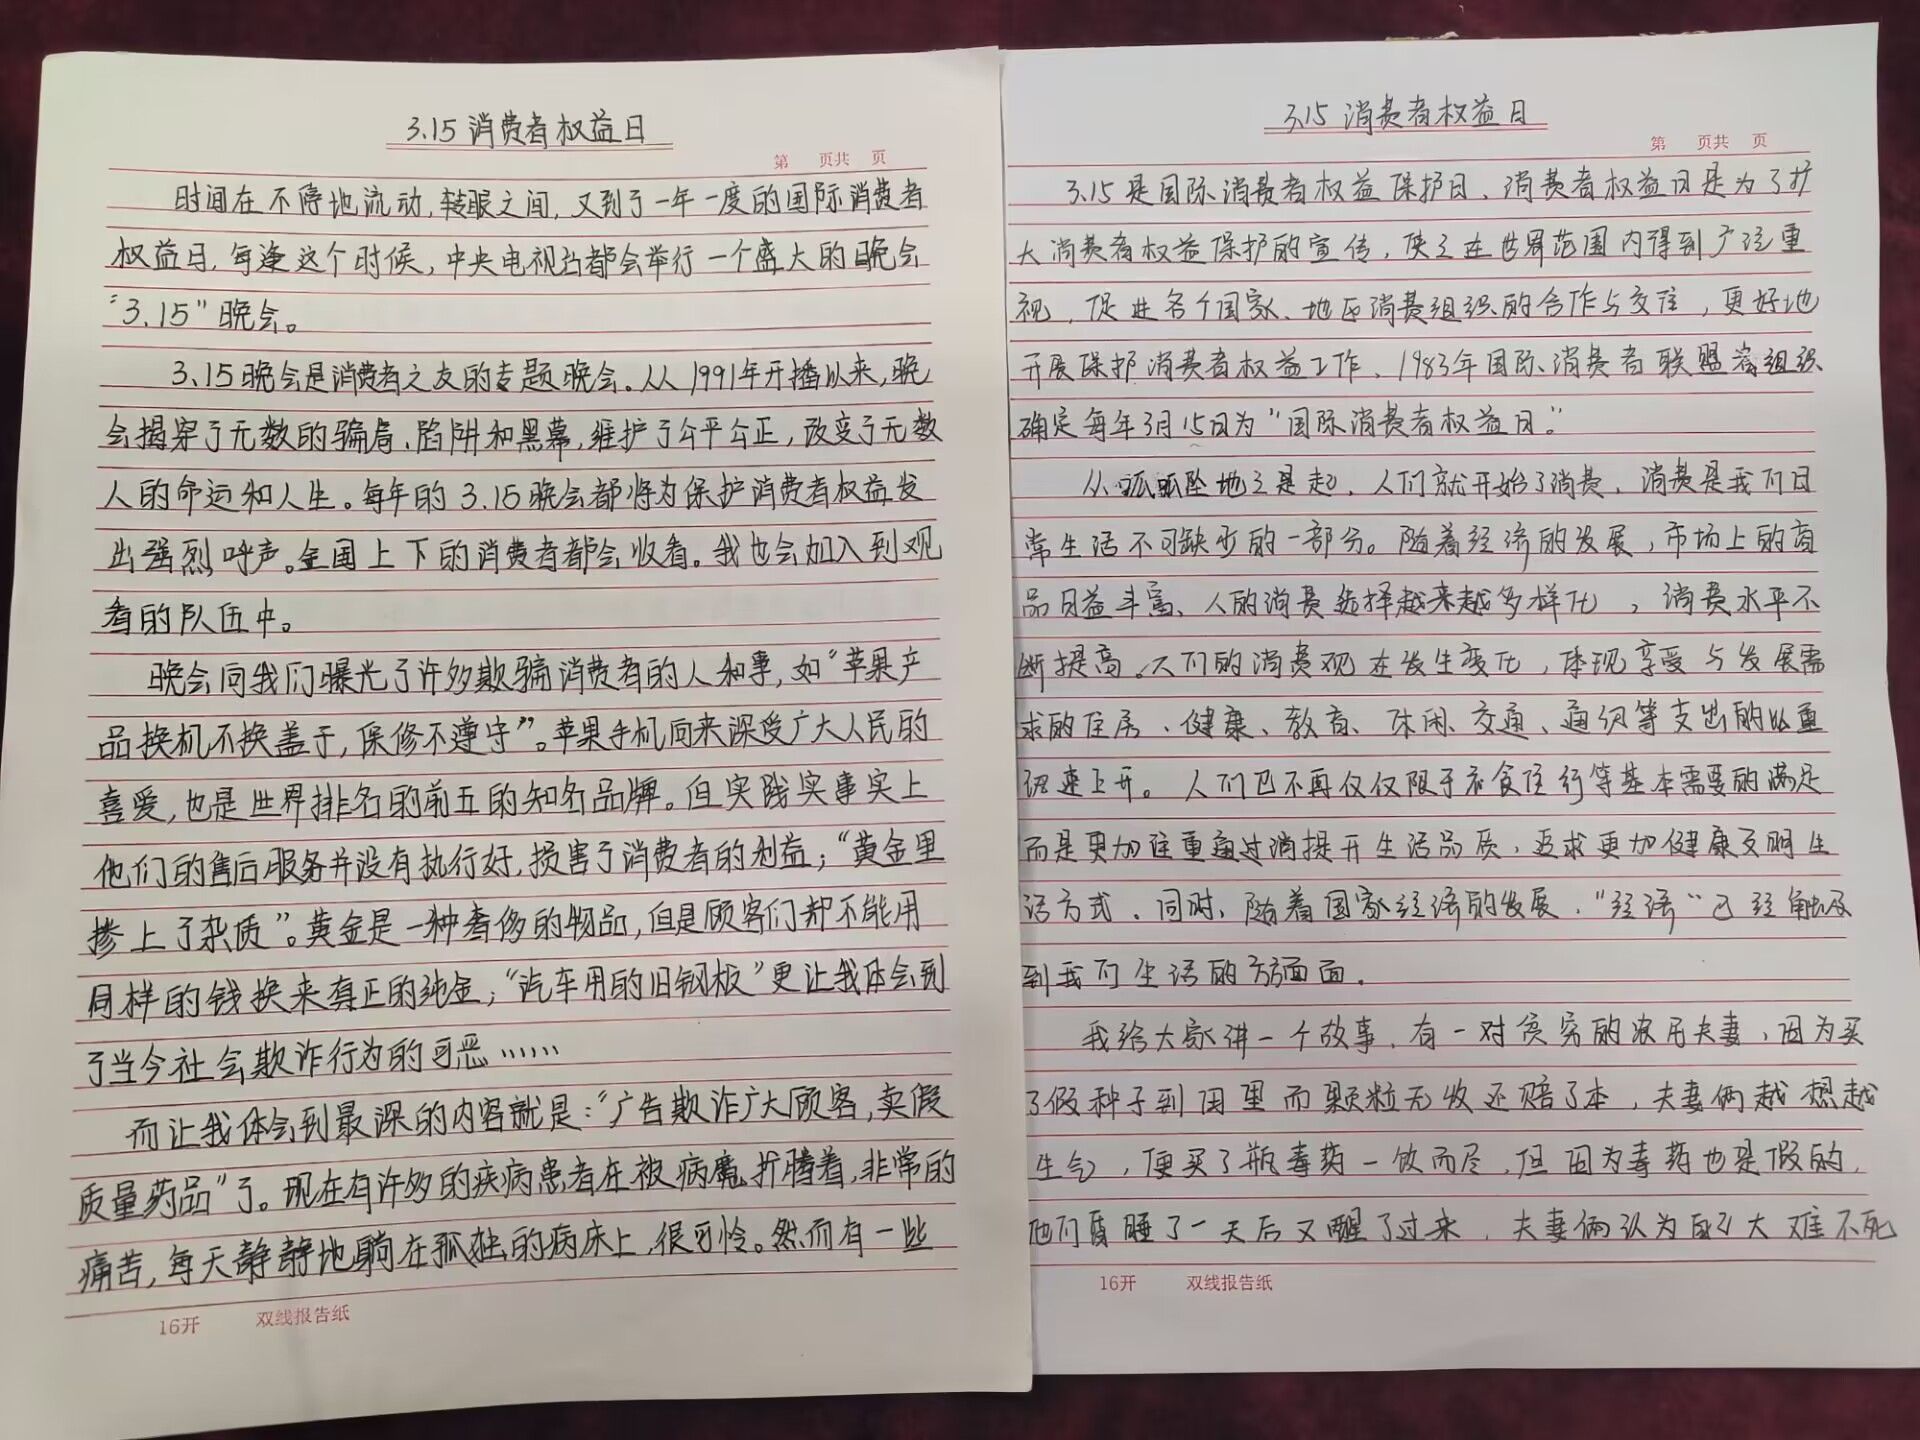 3.15消费者权益日
第 页共 页
时间在不停地流动,转眼之间,又到了一年一度的国际消费者
权益日,每逢这个时候,中央电视台都会举行一个盛大的晚会
“3.15”晚会。
3.15晚会是消费者之友的专题晚会。从1991年开播以来,晚
会揭穿了无数的骗局、陷阱和黑幕,维护了公平公正,改变了无数
人的命运和人生。每年的3.15晚会都将为保护消费者权益发
出强烈呼声。全国上下的消费者都会收看。我也会加入到观
看的队伍中。
晚会向我们曝光了许多欺骗消费者的人和事,如“苹果产
品换机不换盖子,保修不遵守”。苹果手机向来深受广大人民的
喜爱,也是世界排名的前五的知名品牌。但实践实事实上
他们的售后服务并没有执行好,损害了消费者的利益;“黄金里
掺上了杂质”。黄金是一种奢侈的物品,但是顾客们却不能用
同样的钱换来真正的纯金;“汽车用的旧钢板”更让我体会到
了当今社会欺诈行为的可恶……
而让我体会到最深的内容就是:“广告欺诈广大顾客,卖假
质量药品”了。现在有许多的疾病患者在被病魔折腾着,非常的
痛苦,每天静静地躺在孤独的病床上,很可怜。然而有一些
16开 双线报告纸
3.15消费者权益日
第 页共 页
3.15是国际消费者权益保护日、消费者权益日是为了扩
大消费者权益保护的宣传,使之在世界范围内得到广泛重
视,促进各个国家、地区消费组织的合作与交往,更好地
开展保护消费者权益工作、1983年国际消费者联盟组织
确定每年3月15日为“国际消费者权益日。”
从呱呱坠地之是起,人们就开始了消费,消费是我们日
常生活不可缺少的一部分。随着经济的发展,市场上的商
品日益丰富、人的消费选择越来越多样化,消费水平不
断提高。人们的消费观在发生变化,体现享受与发展需
求的住房、健康、教育、休闲、交通、通讯等支出的比重
迅速上升。人们已不再仅仅限于衣食住行等基本需要的满足
而是更加注重通过消提升生活品质,追求更加健康文明生
活方式。同时,随着国家经济的发展,“经济”已经触及
到我们生活的方方面面.
我给大家讲一个故事,有一对贫穷的农民夫妻,因为买
了假种子到田里而颗粒无收还赔了本,夫妻俩越想越
生气,便买了瓶毒药一饮而尽,但因为毒药也是假的,
他们昏睡了一天后又醒了过来,夫妻俩认为自己大难不死
16开 双线报告纸